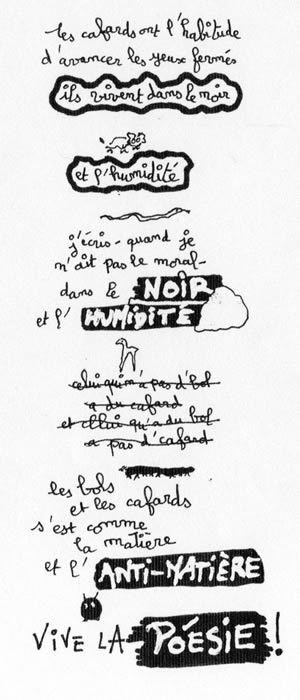 les cafards ont l'habitude
d'avancer les yeux fermés
ils vivent dans le noir
et l'humidité
j'écris - quand je
n'ait pas le moral -
dans le NOIR
et l' HUMIDITÉ
celui qui n'a pas d'bol
a du cafard
et cellui qu'a du bol
a pas d'cafard
les bols
et les cafards
s'est comme
la matière
et l' ANTI-MATIÈRE
ViVE LA POÉSIE !